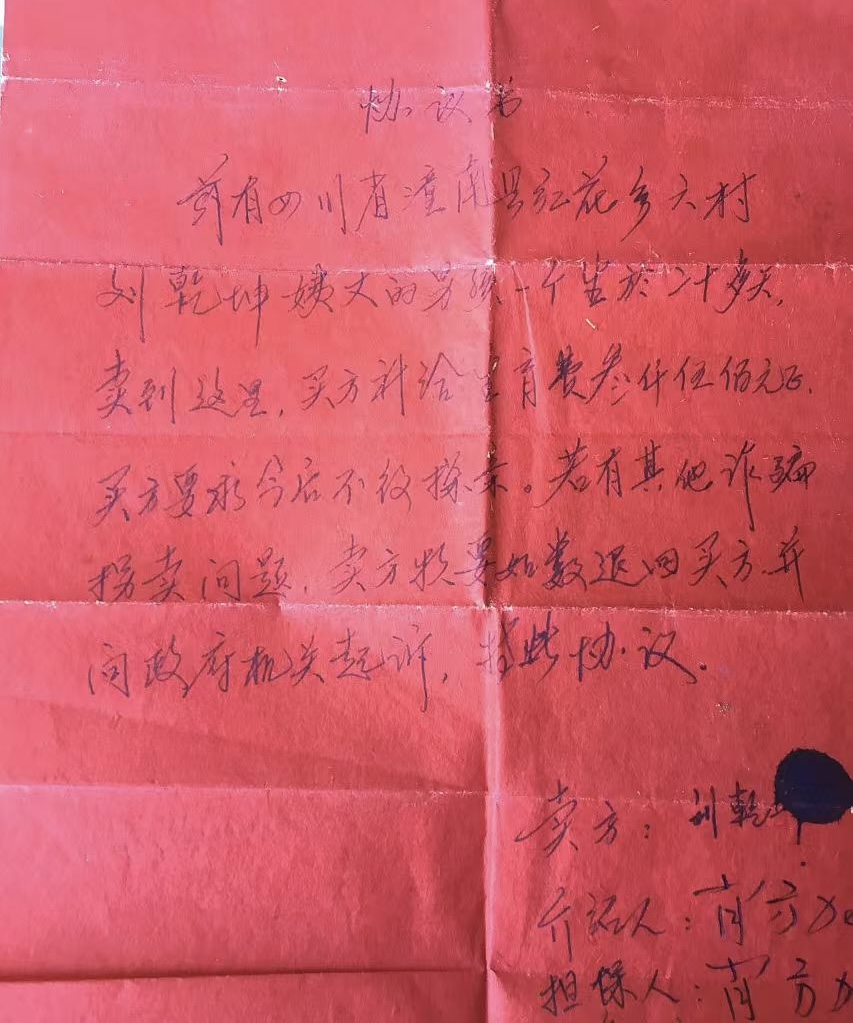 协议书
前有四川省潼南县红花乡六村
刘乾坤姨丈的男孩一个生於二十多天,
卖到这里,买方补给生育费叁仟伍佰元正.
买方要求今后不得探亲。若有其他诈骗
拐卖问题,卖方要如数退回买方并
向政府机关起诉,特此协议.
卖方:刘乾
介绍人:肖方
担保人:肖方